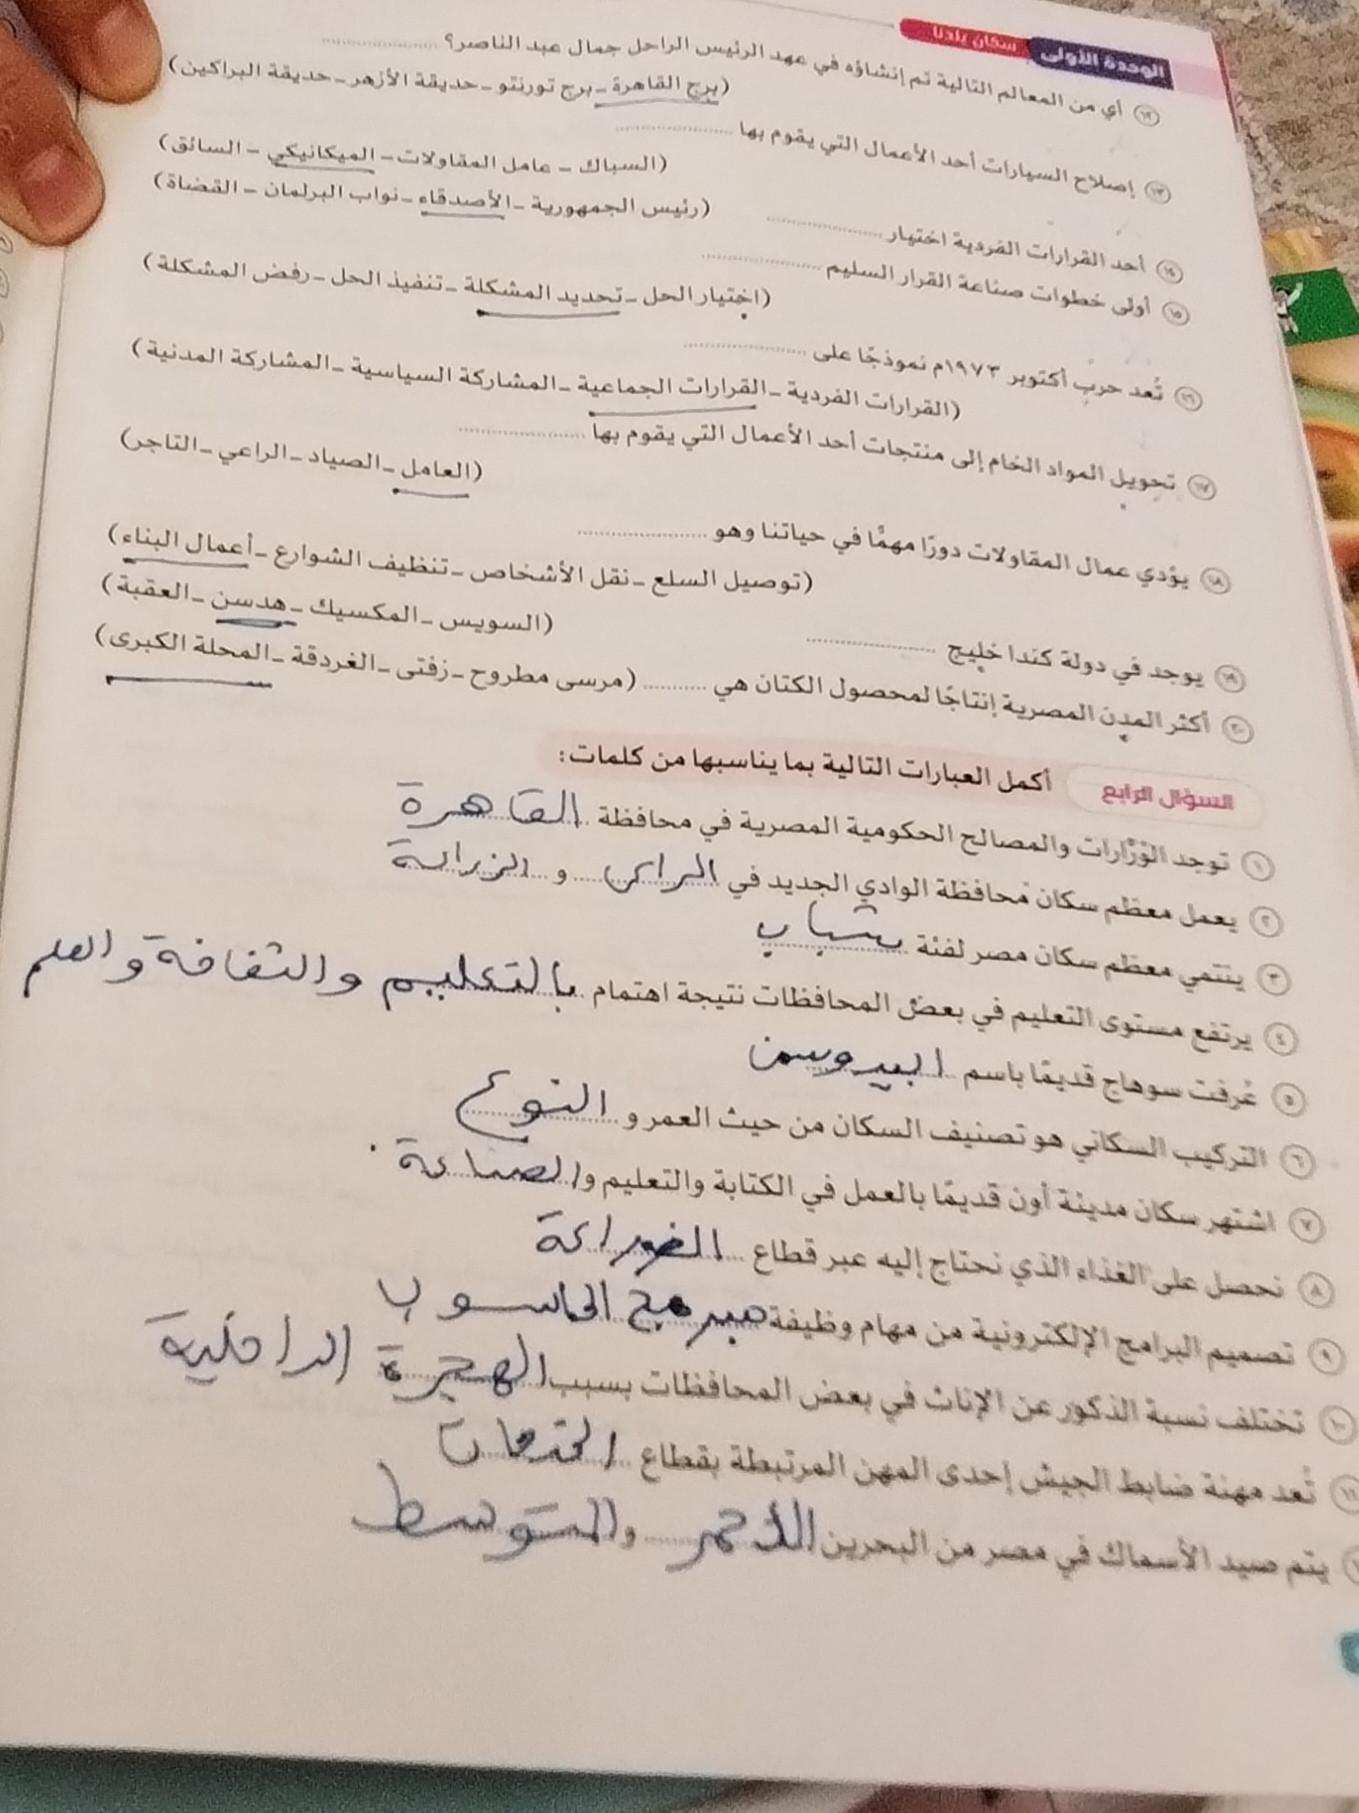 الوحدة الأولى سكان بلدنا
١٢ أي من المعالم التالية تم إنشاؤه في عهد الرئيس الراحل جمال عبد الناصر؟ ..........
(برج القاهرة - برج تورنتو - حديقة الأزهر - حديقة البراكين)
١٣ إصلاح السيارات أحد الأعمال التي يقوم بها ..........
(السباك - عامل المقاولات - الميكانيكي - السائق)
١٤ أحد القرارات الفردية اختيار ..........
(رئيس الجمهورية - الأصدقاء - نواب البرلمان - القضاة)
١٥ أولى خطوات صناعة القرار السليم ..........
(اختيار الحل - تحديد المشكلة - تنفيذ الحل - رفض المشكلة)
١٦ تُعد حرب أكتوبر ١٩٧٣م نموذجًا على ..........
(القرارات الفردية - القرارات الجماعية - المشاركة السياسية - المشاركة المدنية)
١٧ تحويل المواد الخام إلى منتجات أحد الأعمال التي يقوم بها ..........
(العامل - الصياد - الراعي - التاجر)
١٨ يؤدي عمال المقاولات دورًا مهمًا في حياتنا وهو ..........
(توصيل السلع - نقل الأشخاص - تنظيف الشوارع - أعمال البناء)
١٩ يوجد في دولة كندا خليج ..........
(السويس - المكسيك - هدسن - العقبة)
٢٠ أكثر المدن المصرية إنتاجًا لمحصول الكتان هي .......... (مرسى مطروح - زفتى - الغردقة - المحلة الكبرى)
السؤال الرابع أكمل العبارات التالية بما يناسبها من كلمات:
١ توجد الوزارات والمصالح الحكومية المصرية في محافظة القاهرة
٢ يعمل معظم سكان محافظة الوادي الجديد في الراعى و الزراعة
٣ ينتمي معظم سكان مصر لفئة شباب
٤ يرتفع مستوى التعليم في بعض المحافظات نتيجة اهتمام بالتعليم والثقافة والعلم
٥ عُرفت سوهاج قديمًا باسم
٦ التركيب السكاني هو تصنيف السكان من حيث العمر و النوع
٧ اشتهر سكان مدينة أون قديمًا بالعمل في الكتابة والتعليم والصناعة
٨ نحصل على الغذاء الذي نحتاج إليه عبر قطاع
٩ تصميم البرامج الإلكترونية من مهام وظيفة مبرمج الحاسوب
١٠ تختلف نسبة الذكور عن الإناث في بعض المحافظات بسبب الهجرة الداخلية
١١ تُعد مهنة ضابط الجيش إحدى المهن المرتبطة بقطاع الخدمات
يتم صيد الأسماك في مصر من البحرين الأحمر والمتوسط